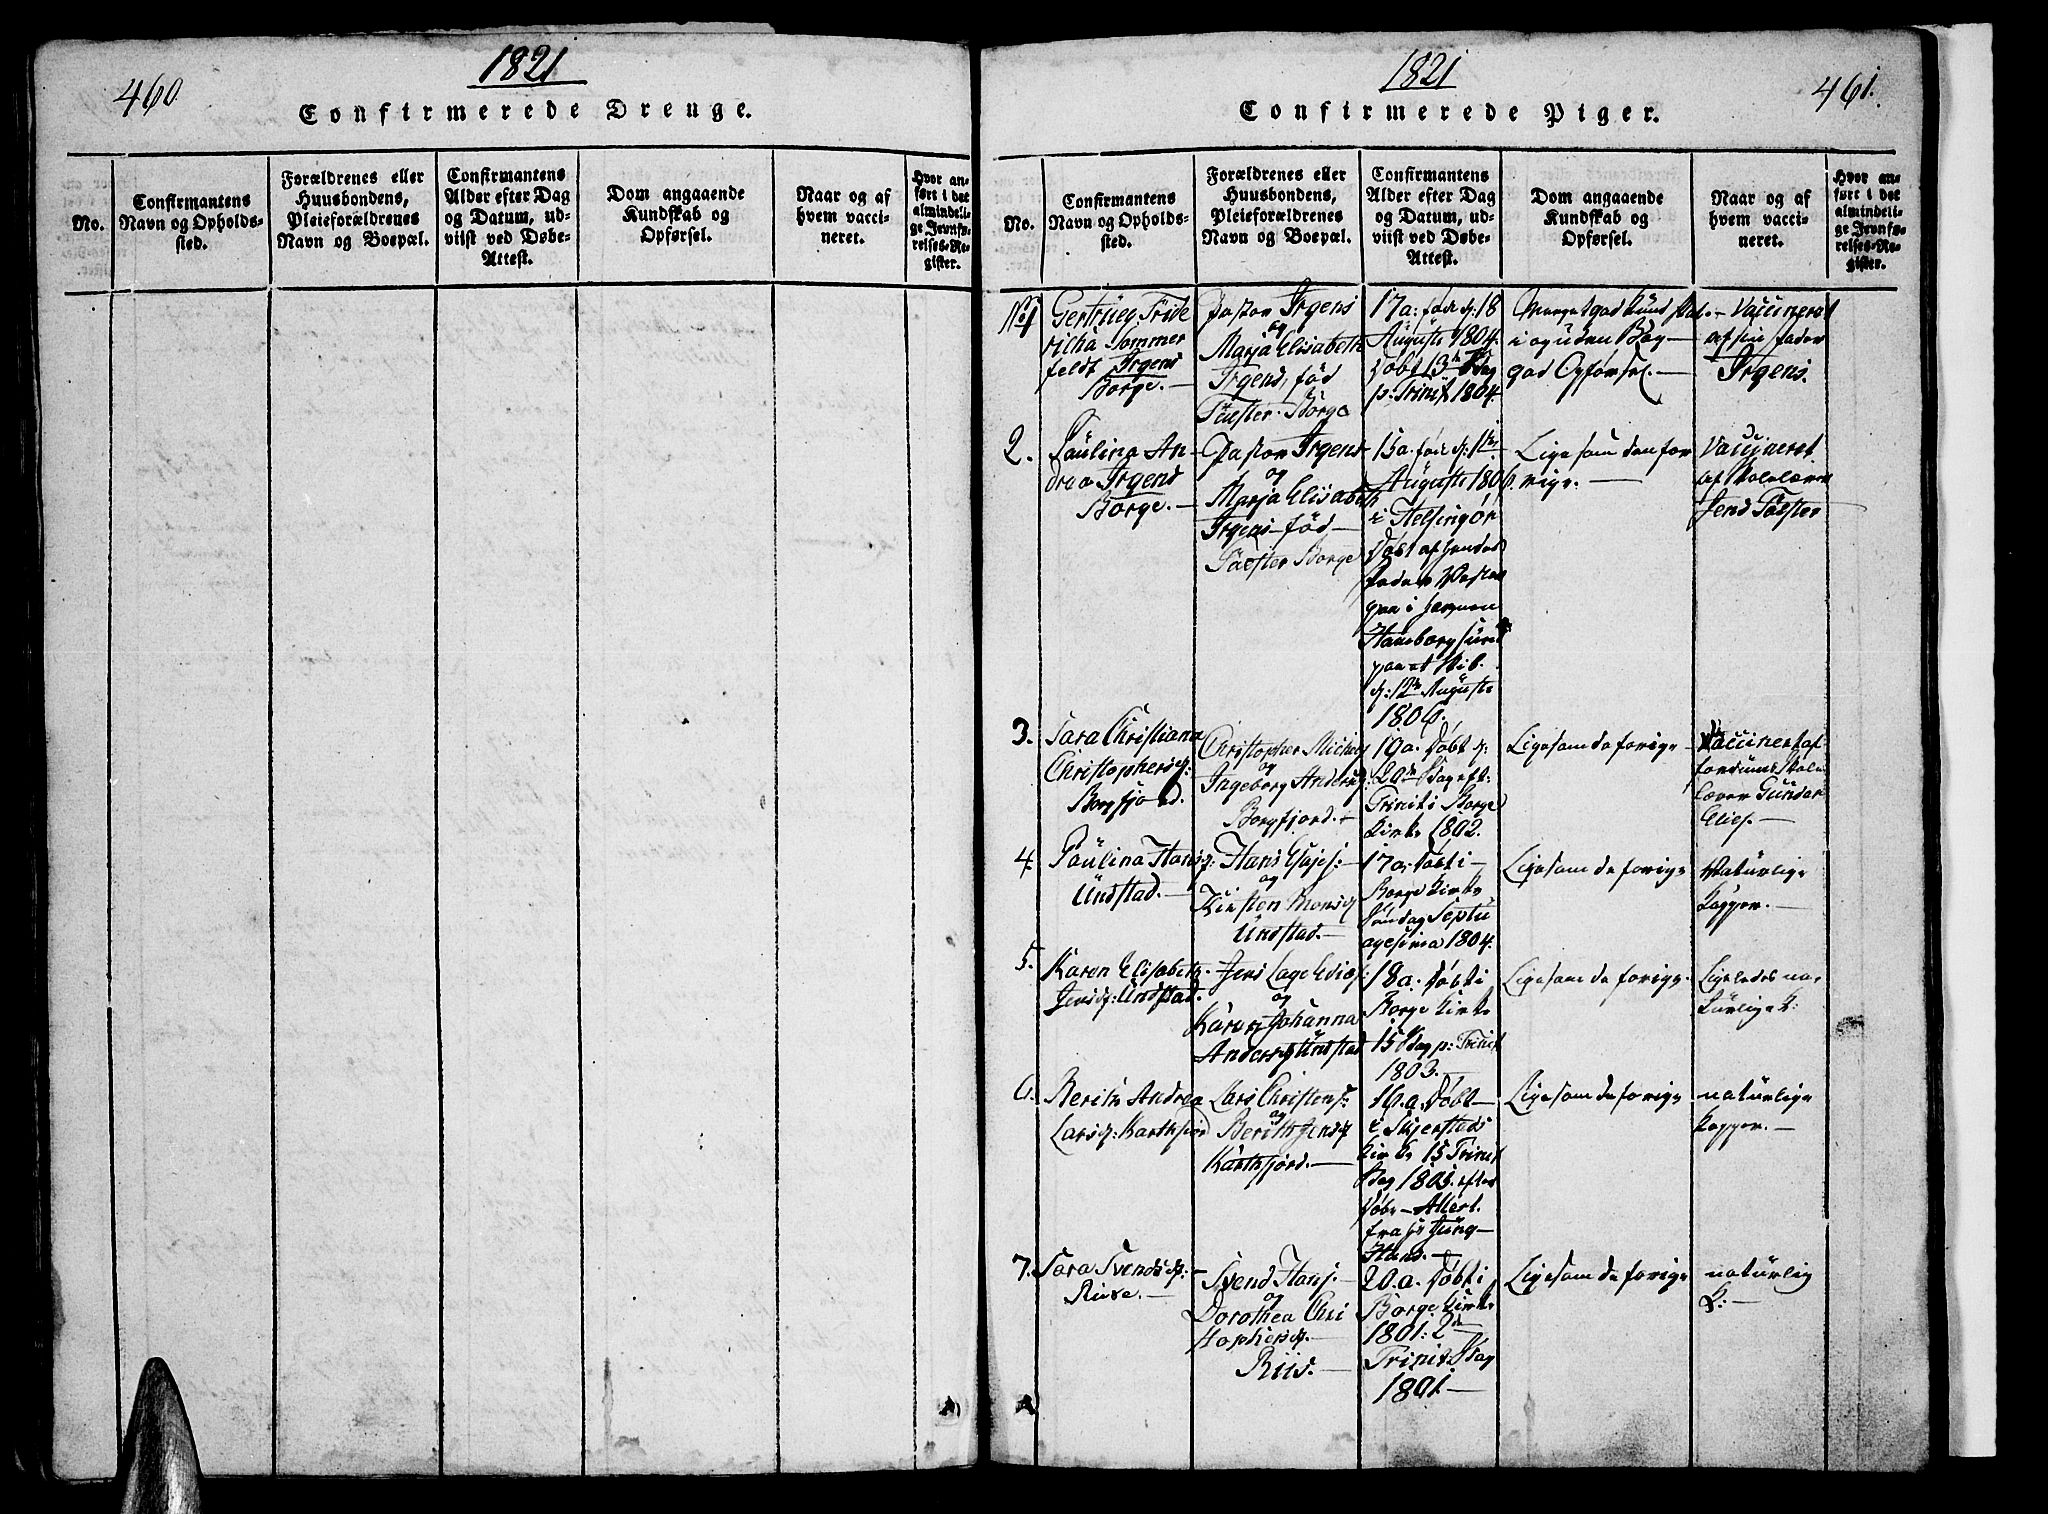 460.
1821
Confirmerede Drenge.
No.
Confirmantens
Navn og Opholds-
sted.
Forældrenes eller
Huusbondens,
Pleieforældrenes
Navn og Boepæl.
Confirmantens
Alder efter Dag
og Datum, ud-
viist ved Døbe-
Attest.
Dom angaaende
Kundskab og
Opførsel.
Naar og af
hvem vacci-
neret.
Hvor an-
ført i det
almindeli-
ge Jevnfø-
relses-Re-
gister.
1821
461.
Confirmerede Piger.
No.
Confirmantens
Navn og Opholds-
sted.
Forældrenes eller
Huusbondens,
Pleieforældrenes
Navn og Boepæl.
Confirmantens
Alder efter Dag
og Datum, ud-
viist ved Døbe-
Attest.
Dom angaaende
Kundskab og
Opførsel.
Naar og af
hvem vacci-
neret.
Hvor an-
ført i det
almindeli-
ge Jevnfø-
relses-Re-
gister.
No 1
Gertrüee Fride
richa Sommer
feldt Irgens
Borge. —
Pastor Irgens
og
Marja Elisabeth
Irgens, föd
Borge
17 a:føde d: 18
Auguste 1804.
Døbt 13de Sdag
p: Trinit 1804.
Meget god Kundskab
i og uden Bog —
god Opførsel. —
Vaccineret
af sin fader
Irgens.
2.
Paulina An
drea Irgens
Borge. —
Pastor Irgens
og
Marja Elisabeth
Irgens — föd —
Borge
15 a. føde d: 1te
Auguste 1806.
i Helsingör
Döbt af hendes
fader
paa
d: 12te Auguste
1806.
Ligesom den for
rige. —
Vaccineret
af Skolelærer
Jens
3.
Sara Christiana
Christophersd:
Borgfjord.
Christopher Michels
og
Ingeborg Andersd:
Borgfjord. —
19 a. Døbt d:
20de Sdag eft:
Trinit i Borge
Kirke 1802.
Ligesom de forige —
Vaccineret af
fordums Skole
lærer Gunder
Elies. —
4.
Paulina Hansd:
Undstad. —
Hans
og
Kirsten Monsd
Undstad. —
17 a. Døbt i —
Borge Kirke
Söndag Septu
agesima 1804.
Ligesom de forige
Naturlige
Kopper. —
5.
Karen Elisabeth
Jensd: Undstad.
Jens Lage
og
Karen Johanna
Andersd Undstad
18 a. Døbt i
Borge Kirke
15 Sdag p: Trinit
1803. —
Ligesom de forige.
Ligeledes na-
turlige K:
6.
Berith Andrea
Larsd: Kartfjord
Lars Christens:
og
Berith Jensd
Kartfjord. —
16. a. Døbt —
i
Kirke 15 Trinit
Sdag 1805. efter
Døbe — Attest.
fra Hr Jung —
Hans. —
Ligesom de forige
naturlige
Kopper. —
7.
Sara Svendsd: —
Svend Hans. —
og
Dorothea Chri
stophersd. —
Riis. —
20. a. Døbt i
Borge Kirke
1801: 2den
Trinit Sdag
1801. —
Ligesom de forige
naturlig
K: —